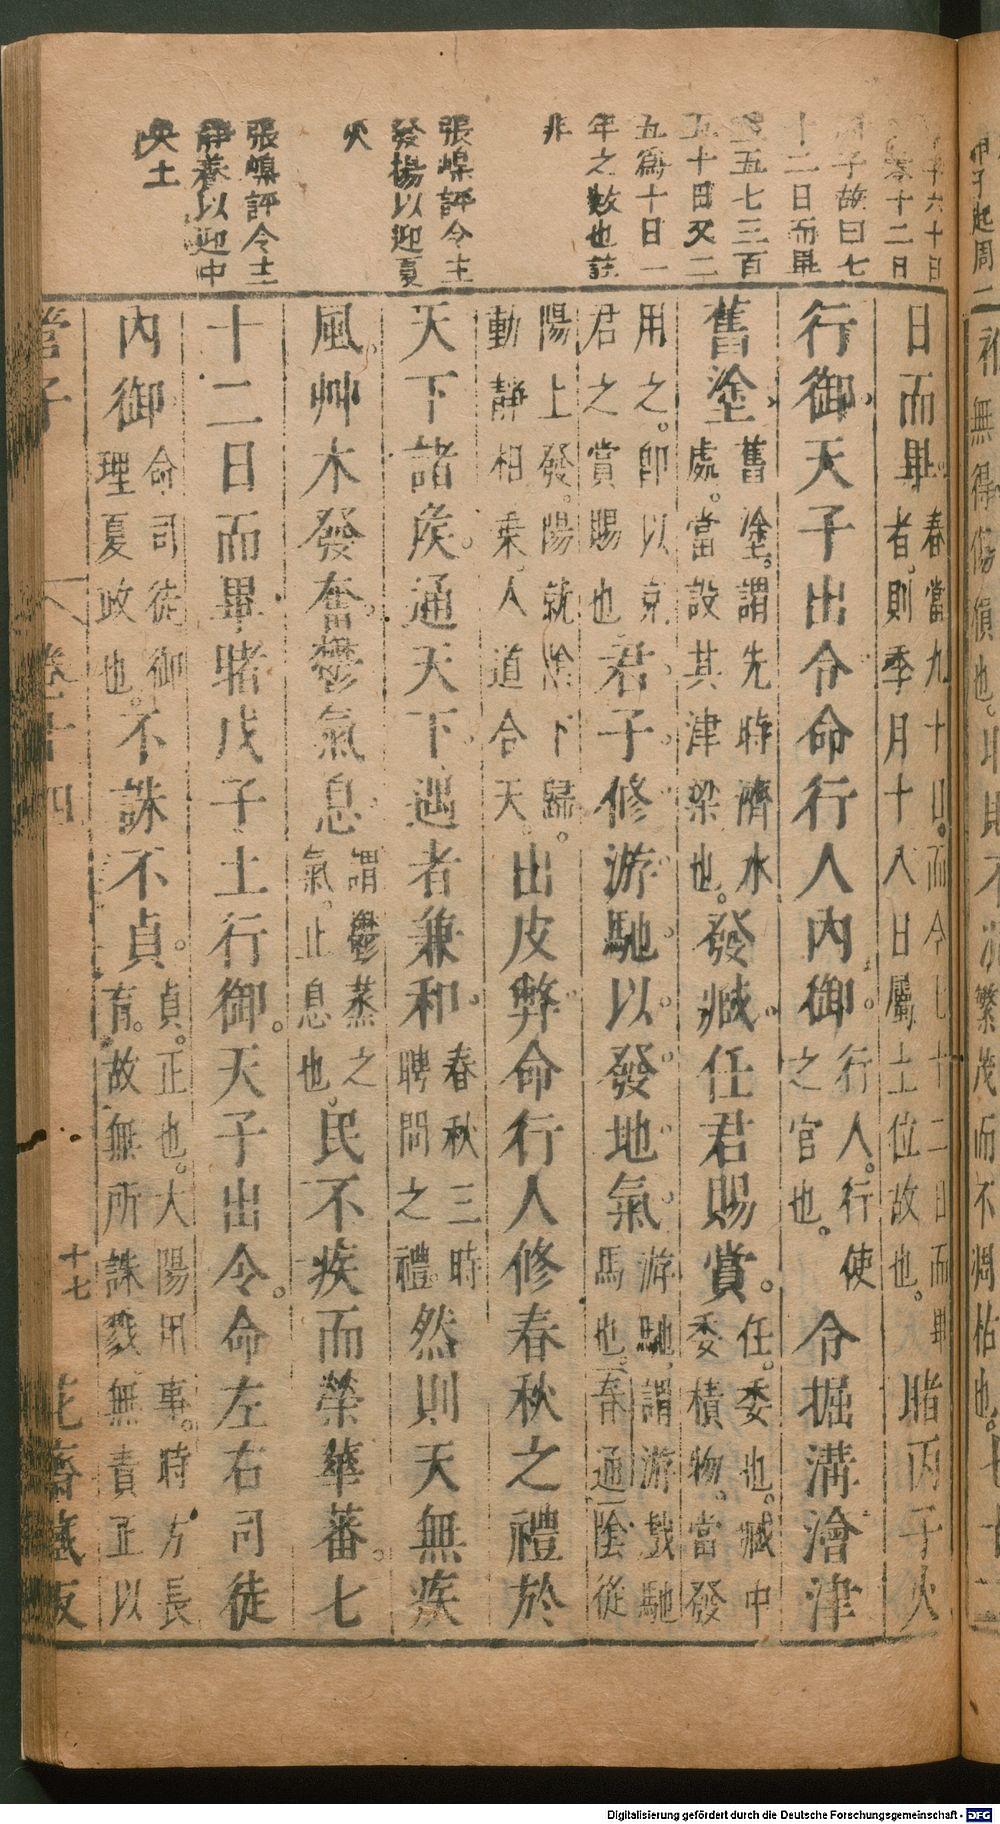 六十日
十二日
子故曰七
十二日而畢
五七三百
五十日又二
五爲十日一
年之數也註
非
張嵲評令主
發揚以迎夏
火
張嵲評令主
靜養以迎中
央土
日而畢春當九十日而今七十二日而畢
者則季月十八日屬土位故也睹丙子火
行御天子出令命行人內御行人行使
之官也令掘溝澮津
舊塗舊塗謂先時濟水
處當設其津梁也發臧任君賜賞任委也臧中
委積物當發
用之卽以京
君之賞賜也君子修游馳以發地氣游馳謂游戲馳
馬也春通陰從
陽上發陽就陰下歸
動靜相乘人道合天出皮幣命行人修春秋之禮於
天下諸矦通天下遇者兼和春秋三時
聘問之禮然則天無疾
風艸木發奮鬱氣息謂鬱蒸之
氣止息也民不疾而榮華蕃七
十二日而畢睹戊子土行御天子出令命左右司徒
內御命司徒御
理夏政也不誅不貞貞正也大陽用事時方長
育故無所誅戮無責正以
管子
卷十四
十七
花齋藏板
Digitalisierung gefördert durch die Deutsche Forschungsgemeinschaft - DFG